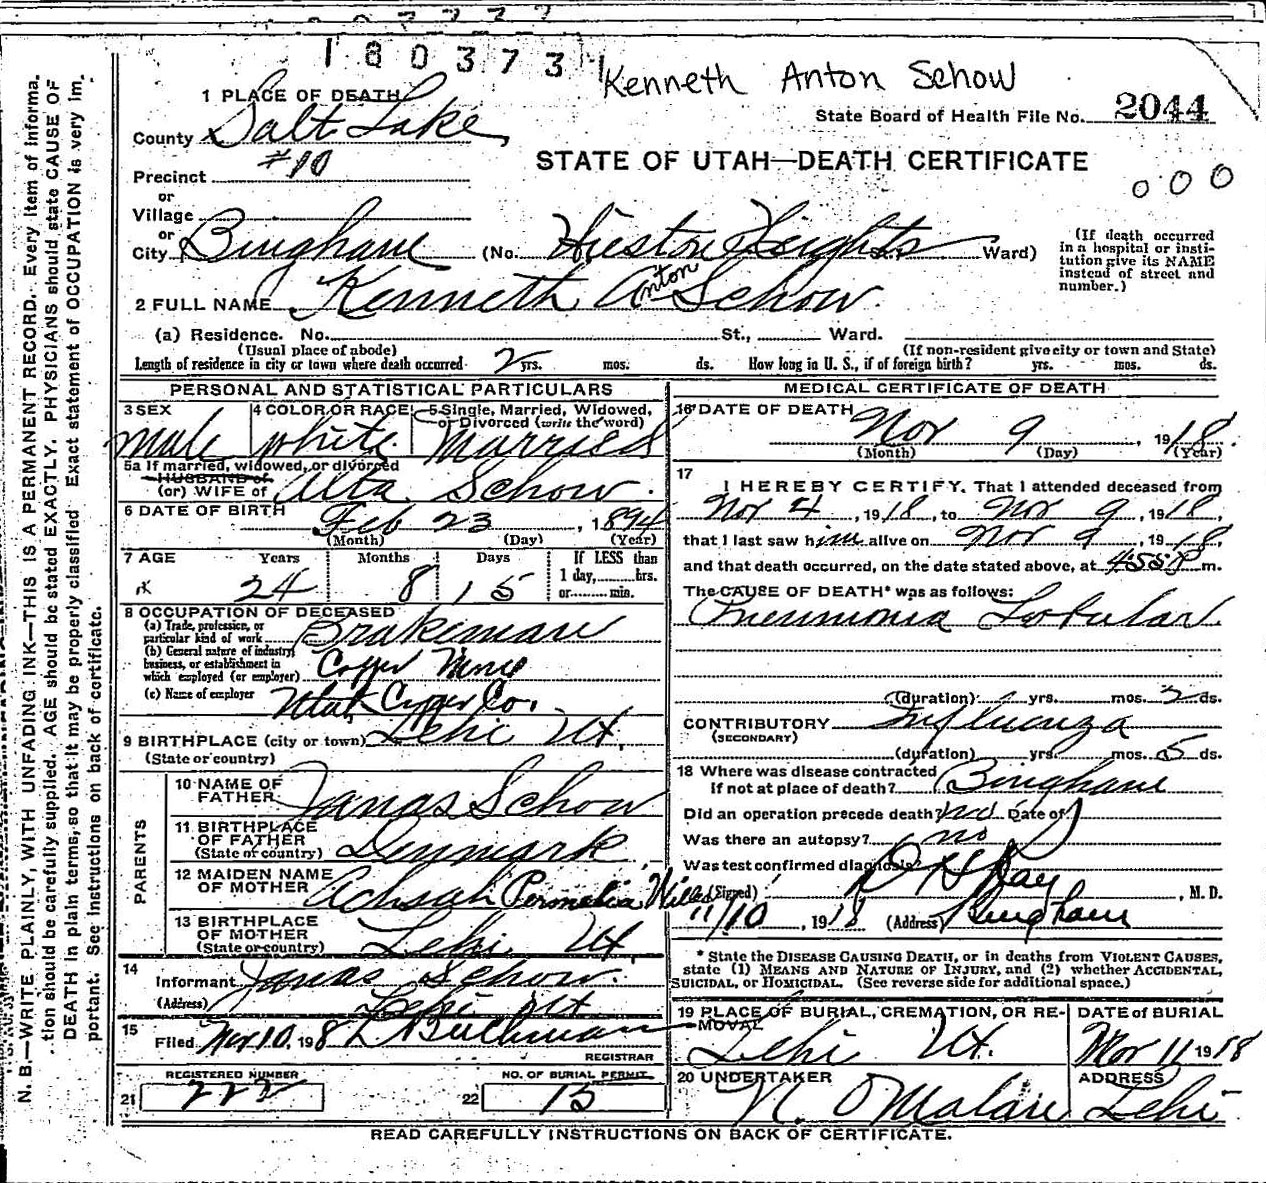 180373
Kenneth Anton Schow
1 PLACE OF DEATH
State Board of Health File No. 2044
County Salt Lake
STATE OF UTAH—DEATH CERTIFICATE
Precinct #10
000
or
Village
or
City Bingham (No. Hieston Heights Ward)
(If death occurred in a hospital or insti-
tution give its NAME
instead of street and
number.)
2 FULL NAME Kenneth Anton Schow
(a) Residence. No. St., Ward.
(Usual place of abode) (If non-resident give city or town and State)
Length of residence in city or town where death occurred 2 yrs. mos. ds. How long in U. S., if of foreign birth? yrs. mos. ds.
PERSONAL AND STATISTICAL PARTICULARS
3 SEX 4 COLOR OR RACE 5 Single, Married, Widowed,
or Divorced (write the word)
Male White Married
5a If married, widowed, or divorced
HUSBAND of
(or) WIFE of Alta Schow.
6 DATE OF BIRTH Feb 23, 1894
(Month) (Day) (Year)
7 AGE Years Months Days If LESS than
1 day, hrs.
or min.
24 8 15
8 OCCUPATION OF DECEASED
(a) Trade, profession, or
particular kind of work Brakeman
(b) General nature of industry,
business, or establishment in
which employed (or employer) Copper Mine
(c) Name of employer Utah Copper Co.
9 BIRTHPLACE (city or town) Lehi Ut.
(State or country)
PARENTS
10 NAME OF
FATHER Janas Schow
11 BIRTHPLACE
OF FATHER
(State or country) Denmark
12 MAIDEN NAME
OF MOTHER Achsah Permelia Willes
13 BIRTHPLACE
OF MOTHER
(State or country) Lehi Ut.
14
Informant Janas Schow.
(Address) Lehi Ut
15
Filed Nov 10. 1918 L Buchman
REGISTRAR
REGISTERED NUMBER NO. OF BURIAL PERMIT
21 222 22 15
MEDICAL CERTIFICATE OF DEATH
16 DATE OF DEATH
Nov 9, 1918.
(Month) (Day) (Year)
17
I HEREBY CERTIFY, That I attended deceased from
Nov 4, 1918, to Nov 9, 1918,
that I last saw him alive on Nov 9, 1918,
and that death occurred, on the date stated above, at m.
The CAUSE OF DEATH* was as follows:
Pneumonia Lobular
(duration) yrs. mos. 2 ds.
CONTRIBUTORY Influenza
(SECONDARY)
(duration) yrs. mos. 5 ds.
18 Where was disease contracted
If not at place of death? Bingham
Did an operation precede death? no Date of
Was there an autopsy? no
Was test confirmed diagnosis?
(Signed) Ray, M. D.
11/10, 1918 (Address) Bingham
* State the DISEASE CAUSING DEATH, or in deaths from VIOLENT CAUSES,
state (1) MEANS AND NATURE OF INJURY, and (2) whether ACCIDENTAL,
SUICIDAL, or HOMICIDAL. (See reverse side for additional space.)
19 PLACE OF BURIAL, CREMATION, OR RE-
MOVAL DATE of BURIAL
Lehi Ut. Nov 11 1918
20 UNDERTAKER ADDRESS
N. O Malan Lehi
READ CAREFULLY INSTRUCTIONS ON BACK OF CERTIFICATE.
N. B.—WRITE PLAINLY, WITH UNFADING INK—THIS IS A PERMANENT RECORD. Every item of informa-
tion should be carefully supplied. AGE should be stated EXACTLY. PHYSICIANS should state CAUSE OF
DEATH in plain terms, so that it may be properly classified. Exact statement of OCCUPATION is very im-
portant. See instructions on back of certificate.